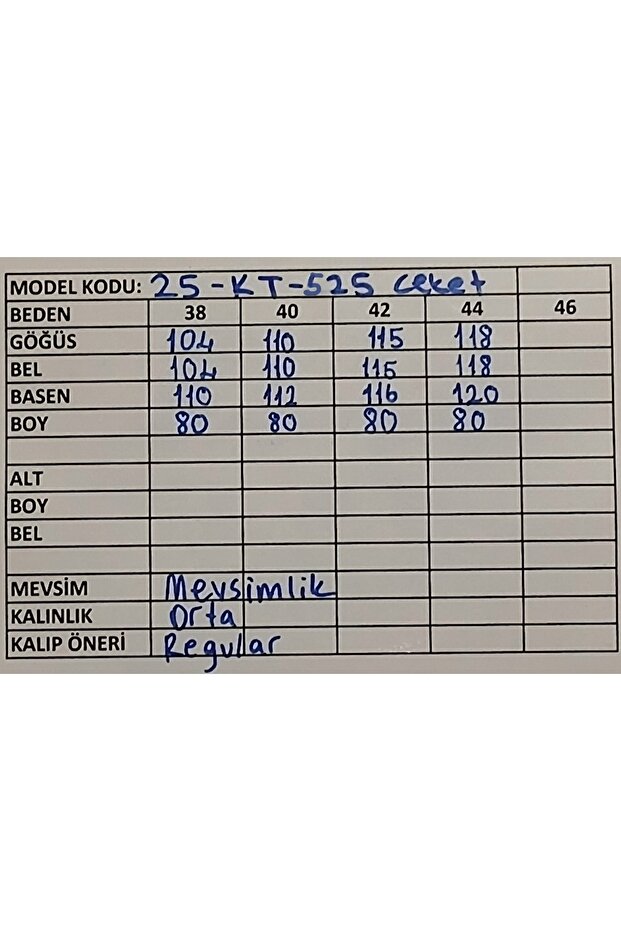 MODEL KODU: 25-KT-525 ceket
BEDEN 38 40 42 44 46
GÖĞÜS 104 110 115 118
BEL 104 110 115 118
BASEN 110 112 116 120
BOY 80 80 80 80
ALT
BOY
BEL
MEVSİM Mevsimlik
KALINLIK Orta
KALIP ÖNERİ Regular